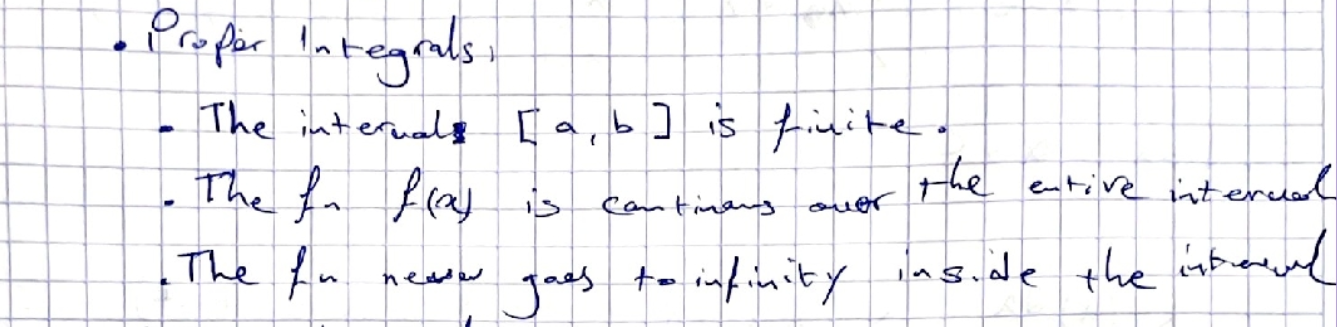 • Proper Integrals,
- The interval [a, b] is finite.
- The fn f(x) is continous over the entire interval
. The fn never goes to infinity inside the interval